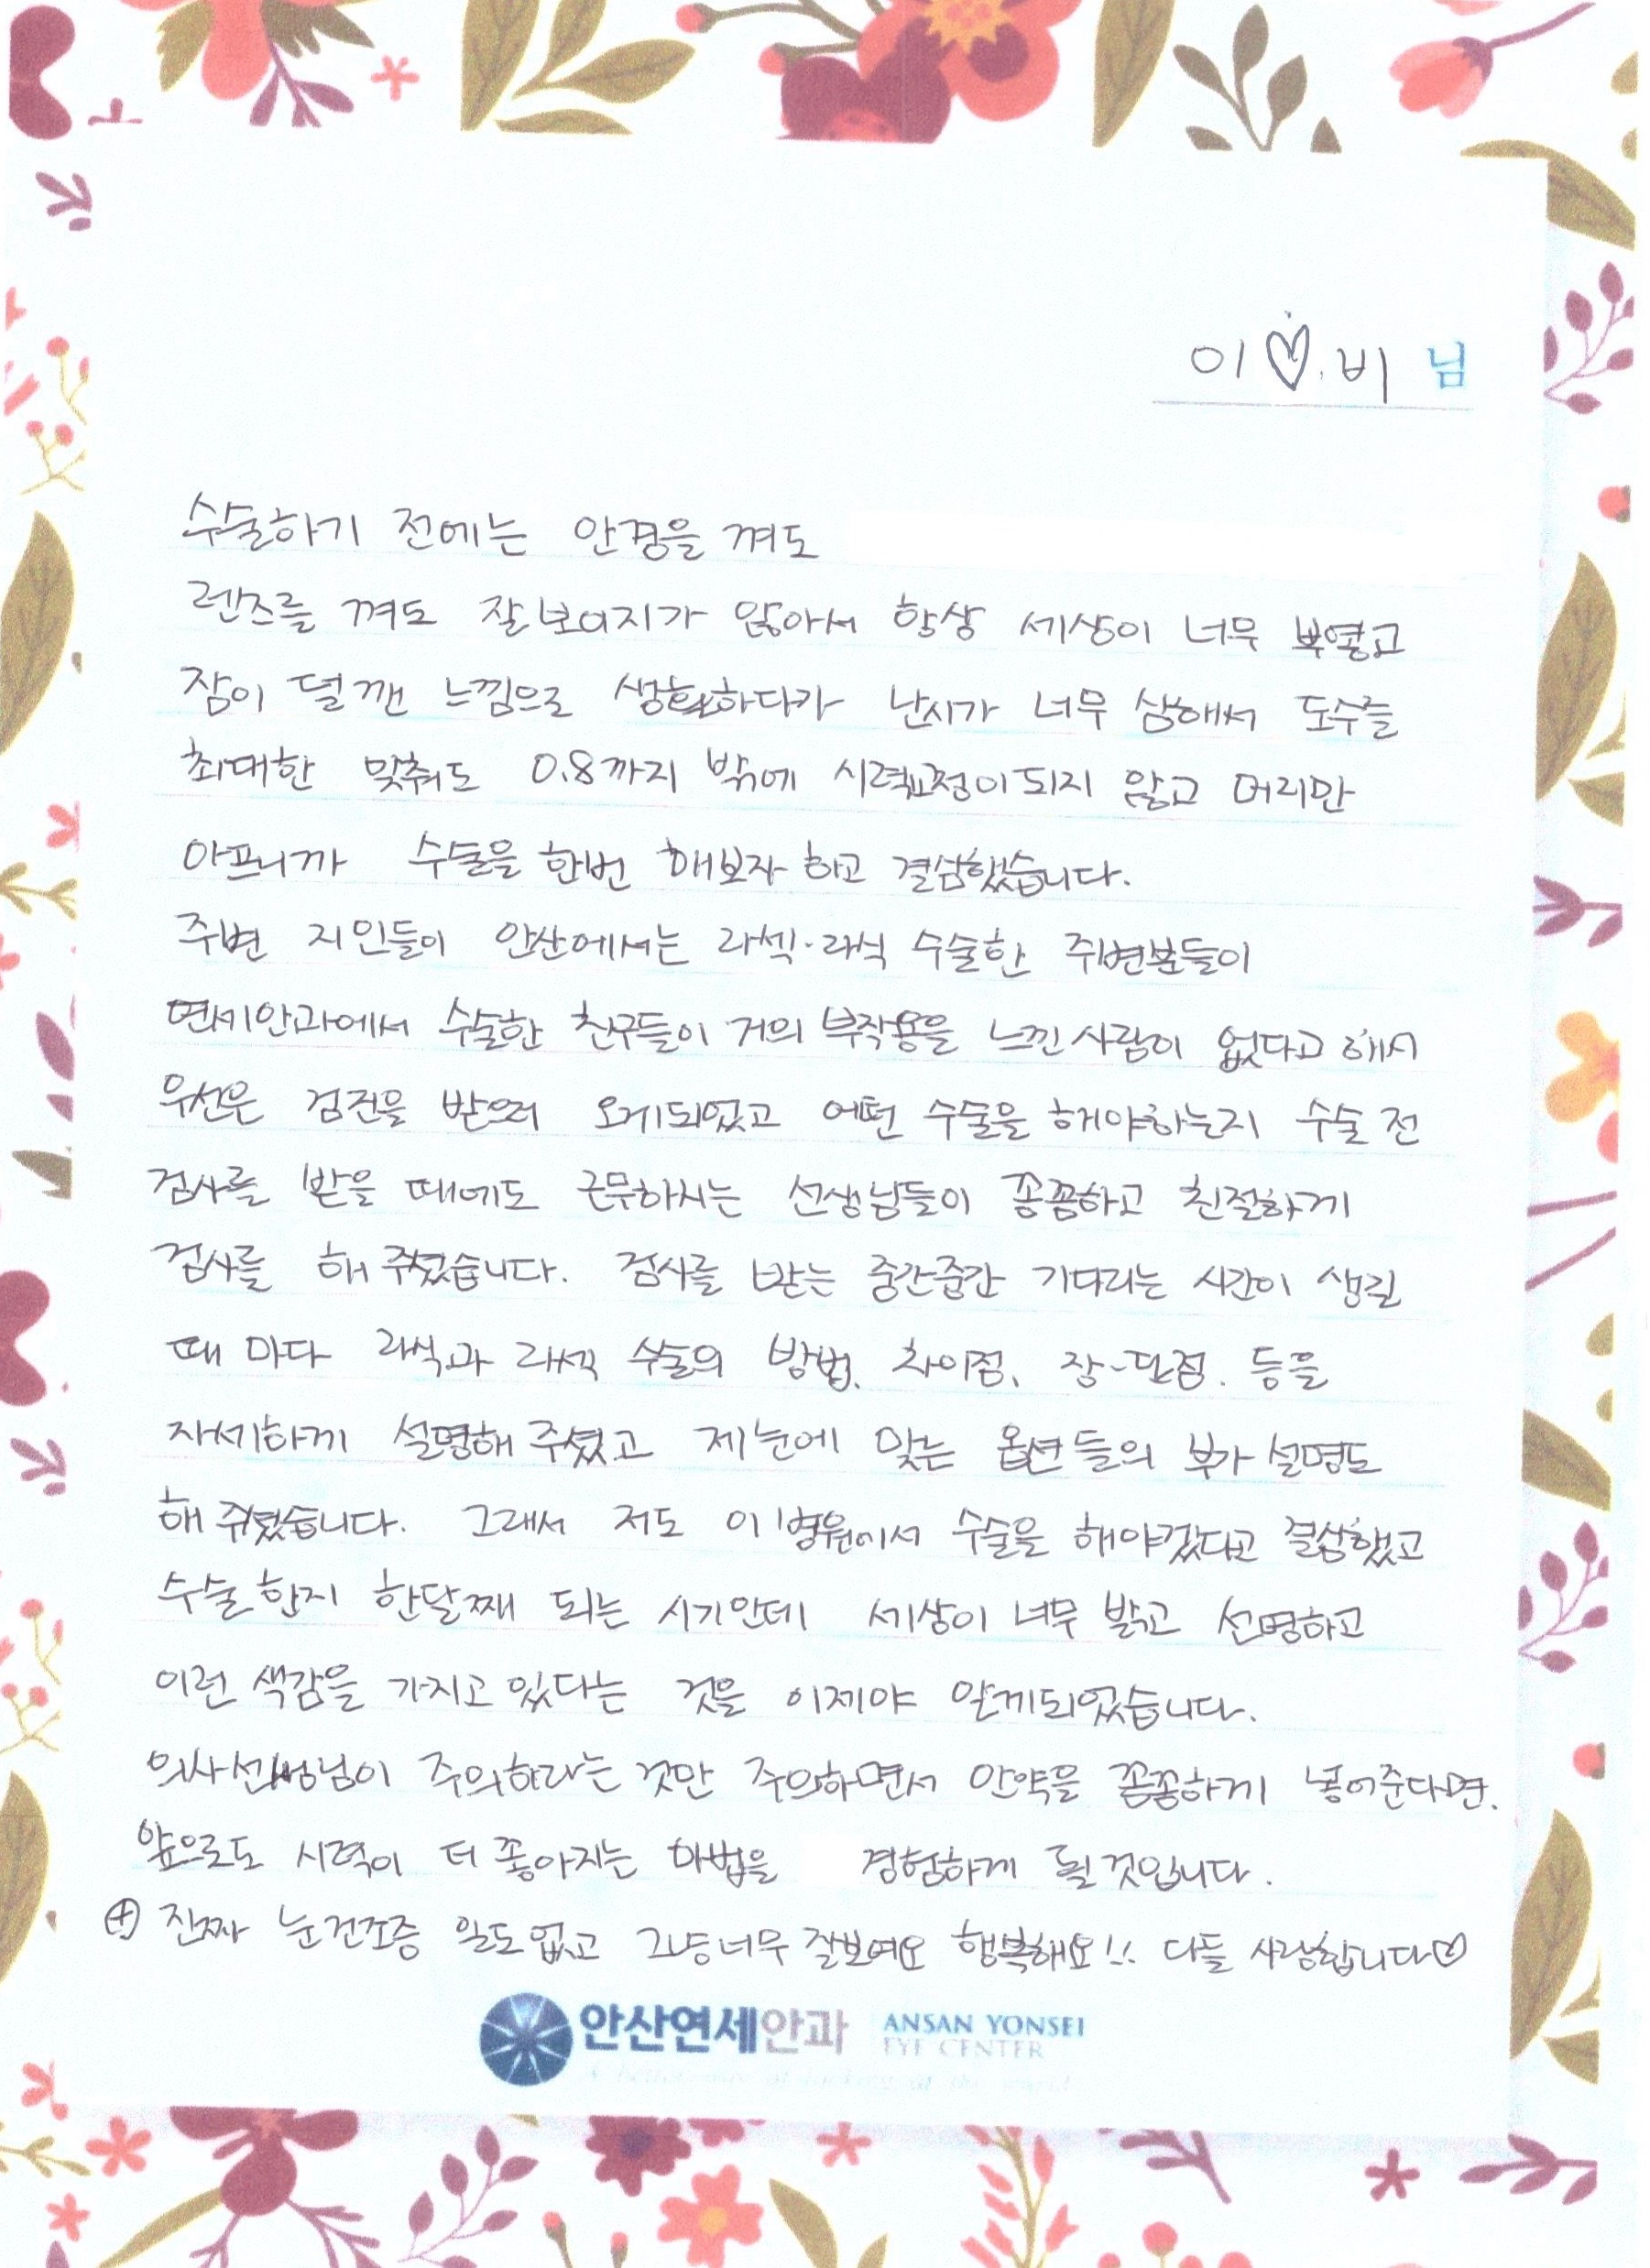 이♡비 님
수술하기 전에는 안경을 껴도
렌즈를 껴도 잘보이지가 않아서 항상 세상이 너무 뿌옇고
잠이 덜깬 느낌으로 생활하다가 난시가 너무 심해서 도수를
최대한 맞춰도 0.8까지 밖에 시력교정이되지 않고 머리만
아프니까 수술을 한번 해보자 하고 결심했습니다.
주변 지인들이 안산에서는 라섹·라식 수술한 주변분들이
연세안과에서 수술한 친구들이 거의 부작용을 느낀사람이 없다고 해서
우선은 검진을 받으러 오게되었고 어떤 수술을 해야하는지 수술 전
검사를 받을 때에도 근무하시는 선생님들이 꼼꼼하고 친절하게
검사를 해 주셨습니다. 검사를 받는 중간중간 기다리는 시간이 생길
때 마다 라식과 라섹 수술의 방법, 차이점, 장-단점, 등을
자세하게 설명해 주셨고 제눈에 맞는 옵션들의 부가 설명도
해 주셨습니다. 그래서 저도 이 병원에서 수술을 해야겠다고 결심했고
수술한지 한달째 되는 시기인데 세상이 너무 밝고 선명하고
이런 색감을 가지고 있다는 것을 이제야 알게되었습니다.
의사선생님이 주의하라는 것만 주의하면서 안약을 꼼꼼하게 넣어준다면,
앞으로도 시력이 더 좋아지는 마법을 경험하게 될것입니다.
⊕ 진짜 눈건조증 일도없고 그냥너무 잘보여요 행복해요!! 다들 사랑합니다♡
안산연세안과 ANSAN YONSEI
EYE CENTER